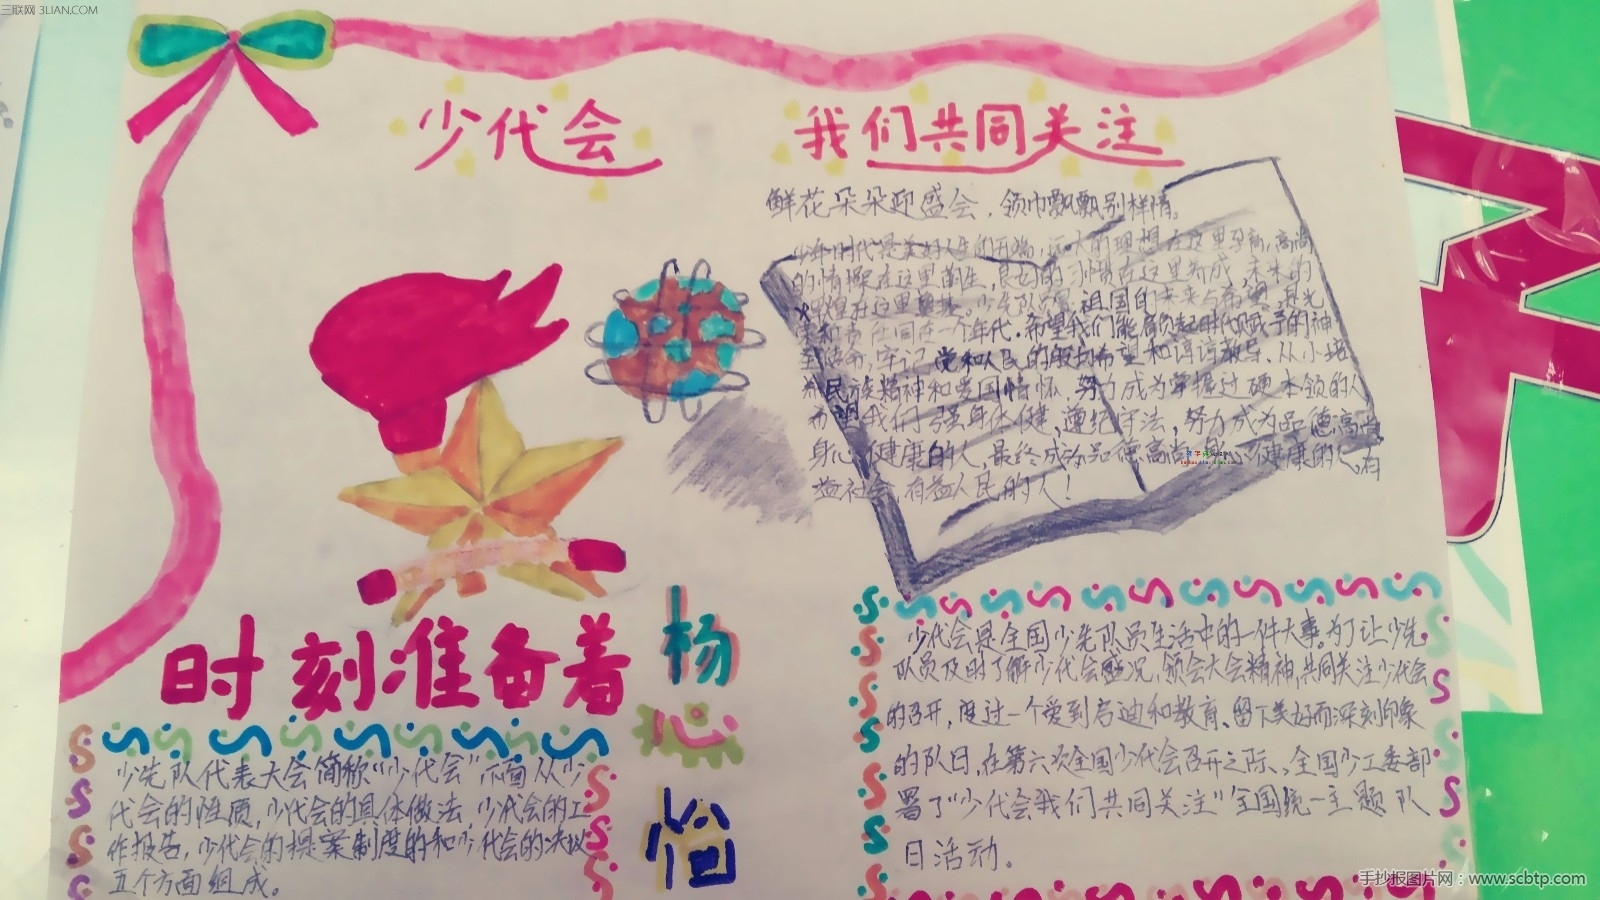 三联网 3LIAN.COM
少代会 我们共同关注
鲜花朵朵迎盛会，领巾飘飘别样情。
少年时代是美好人生的开端，远大的理想在这里孕育，高尚
的情操在这里萌生，良好的习惯在这里养成，未来的
在这里奠基。少先队员是祖国的未来与希望，
和责任同在一个年代．希望我们能肩负起时代赋予的神
圣使命，牢记党和人民的殷切希望和谆谆教导．从小培
养民族精神和爱国情怀．努力成为掌握过硬本领的人
希望我们强身体健，遵纪守法，努力成为品德高尚
身心健康的人，最终成为品德高尚身心健康的人，有
益社会，有益人民的人！
时刻准备着
杨
心
怡
少先队代表大会简称“少代会”下面从少
代会的性质，少代会的具体做法，少代会的工
作报告，少代会的提案制度的和少代会的决议
五个方面组成。
少代会是全国少先队员生活中的一件大事。为了让少先
队员及时了解少代会盛况，领会大会精神，共同关注少代会
的召开，度过一个受到启迪和教育、留下美好而深刻印象
的队日，在第六次全国少代会召开之际、全国少工委部
署了“少代会我们共同关注”全国统一主题队
日活动。
手抄报图片网：www.scbtp.com